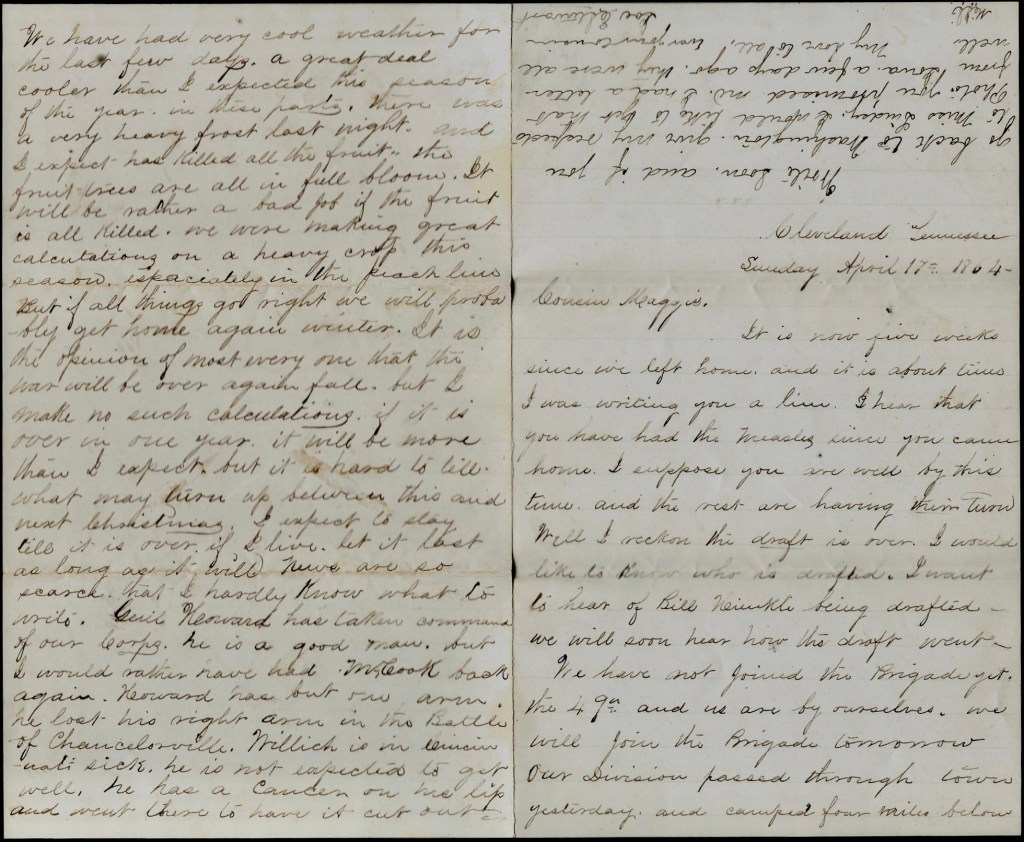 Cleveland Tennessee
Sunday April 17th 1864
Cousin Maggie.
It is now five weeks
since we left home. and it is about time
I was writing you a line. I hear that
you have had the Measles since you came
home. I suppose you are well by this
time. and the rest are having their turn
Well I reckon the draft is over. I would
like to know who is drafted. I want
to hear of Bill Hinkle being drafted –
we will soon hear how the draft went –
We have not joined the Brigade yet.
the 49th and us are by ourselves. we
will join the Brigade tomorrow
Our Division passed through town
yesterday. and camped four miles below
We have had very cool weather for
the last few days. a great deal
cooler than I expected this season
of the year. in these parts. there was
a very heavy frost last night. and
I expect has killed all the fruit. the
fruit trees are all in full bloom. It
will be rather a bad job if the fruit
is all killed. we were making great
calculations on a heavy crop this
season. espaciately in the peach line
But if all things go right we will proba
-bly get home again winter. It is
the opinion of most every one that the
war will be over again fall. but I
make no such calculations. if it is
over in one year. it will be more
than I expect. but it is hard to tell.
what may turn up between this and
next Christmas. I expect to stay
till it is over. if I live. let it last
as long as it will News are so
scarce. that I hardly know what to
write. Genl Howard has taken command
of our Corps. he is a good man. but
I would rather have had McCook back
again. Howard has but one arm.
he lost his right arm in the Battle
of Chancelorville. Willich is in Cincin
-nati sick. he is not expected to get
well. he has a cancer on his lip
and went there to have it cut out –
Write soon. and if you
go back to Washington. give my respects
to Miss Linder. I would like to get that
Photo you promised me. I had a letter
from Iowa. a few days ago. they were all
well. My love to all. Ever your cousin